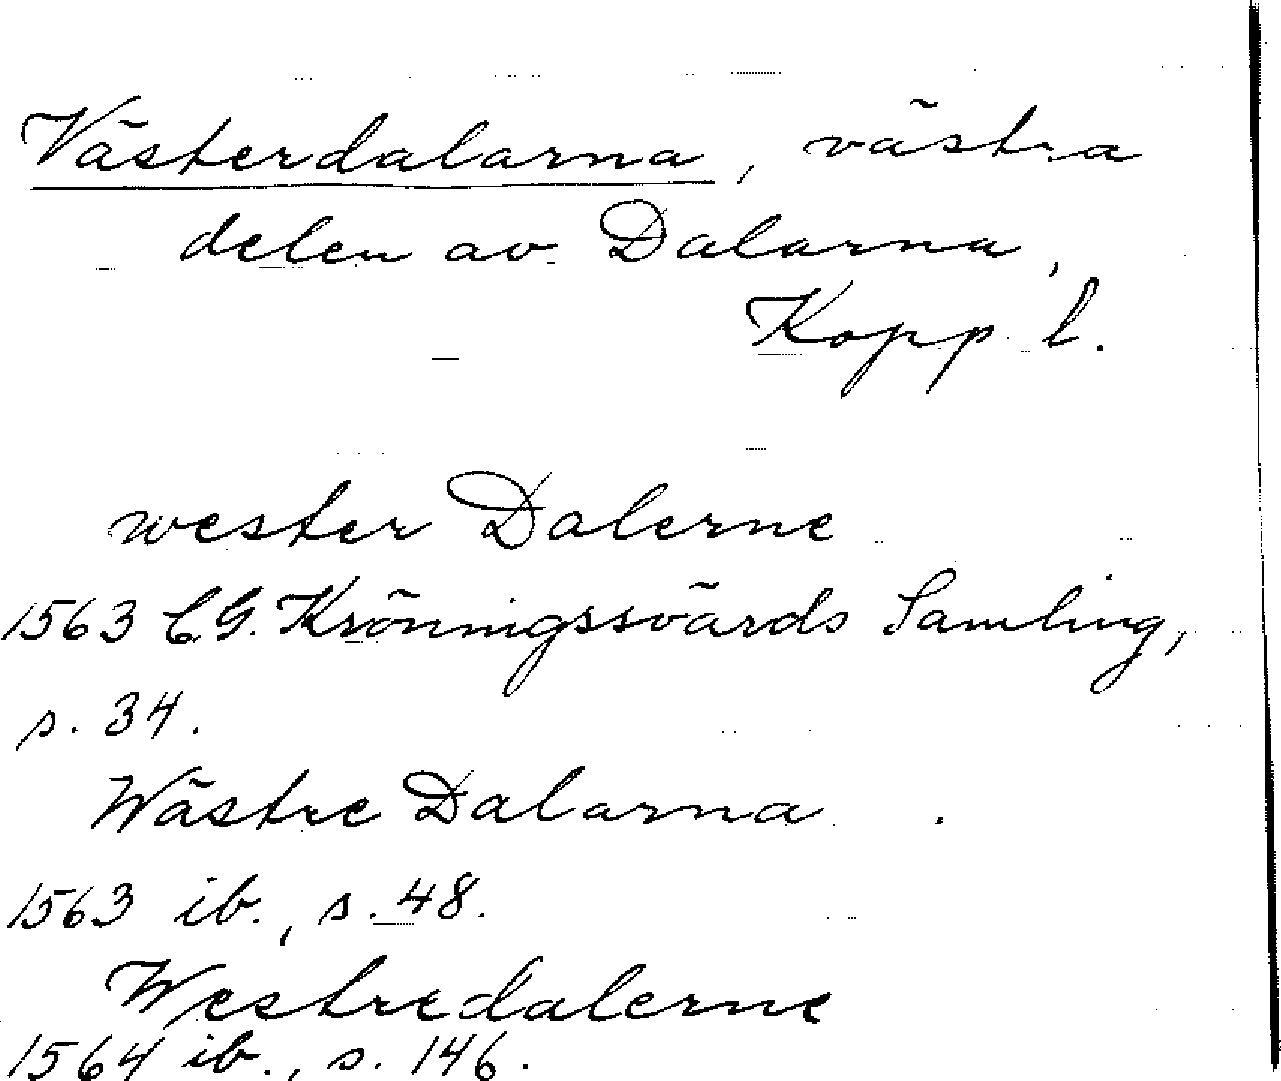 Västerdalarna, västra
delen av Dalarna,
Kopp. l.
wester Dalerne
1563 C.G. Kröningssvärds Samling,
s. 34.
Wästre Dalarna.
1563 ib., s. 48.
Westredalerne
1564 ib., s. 146.